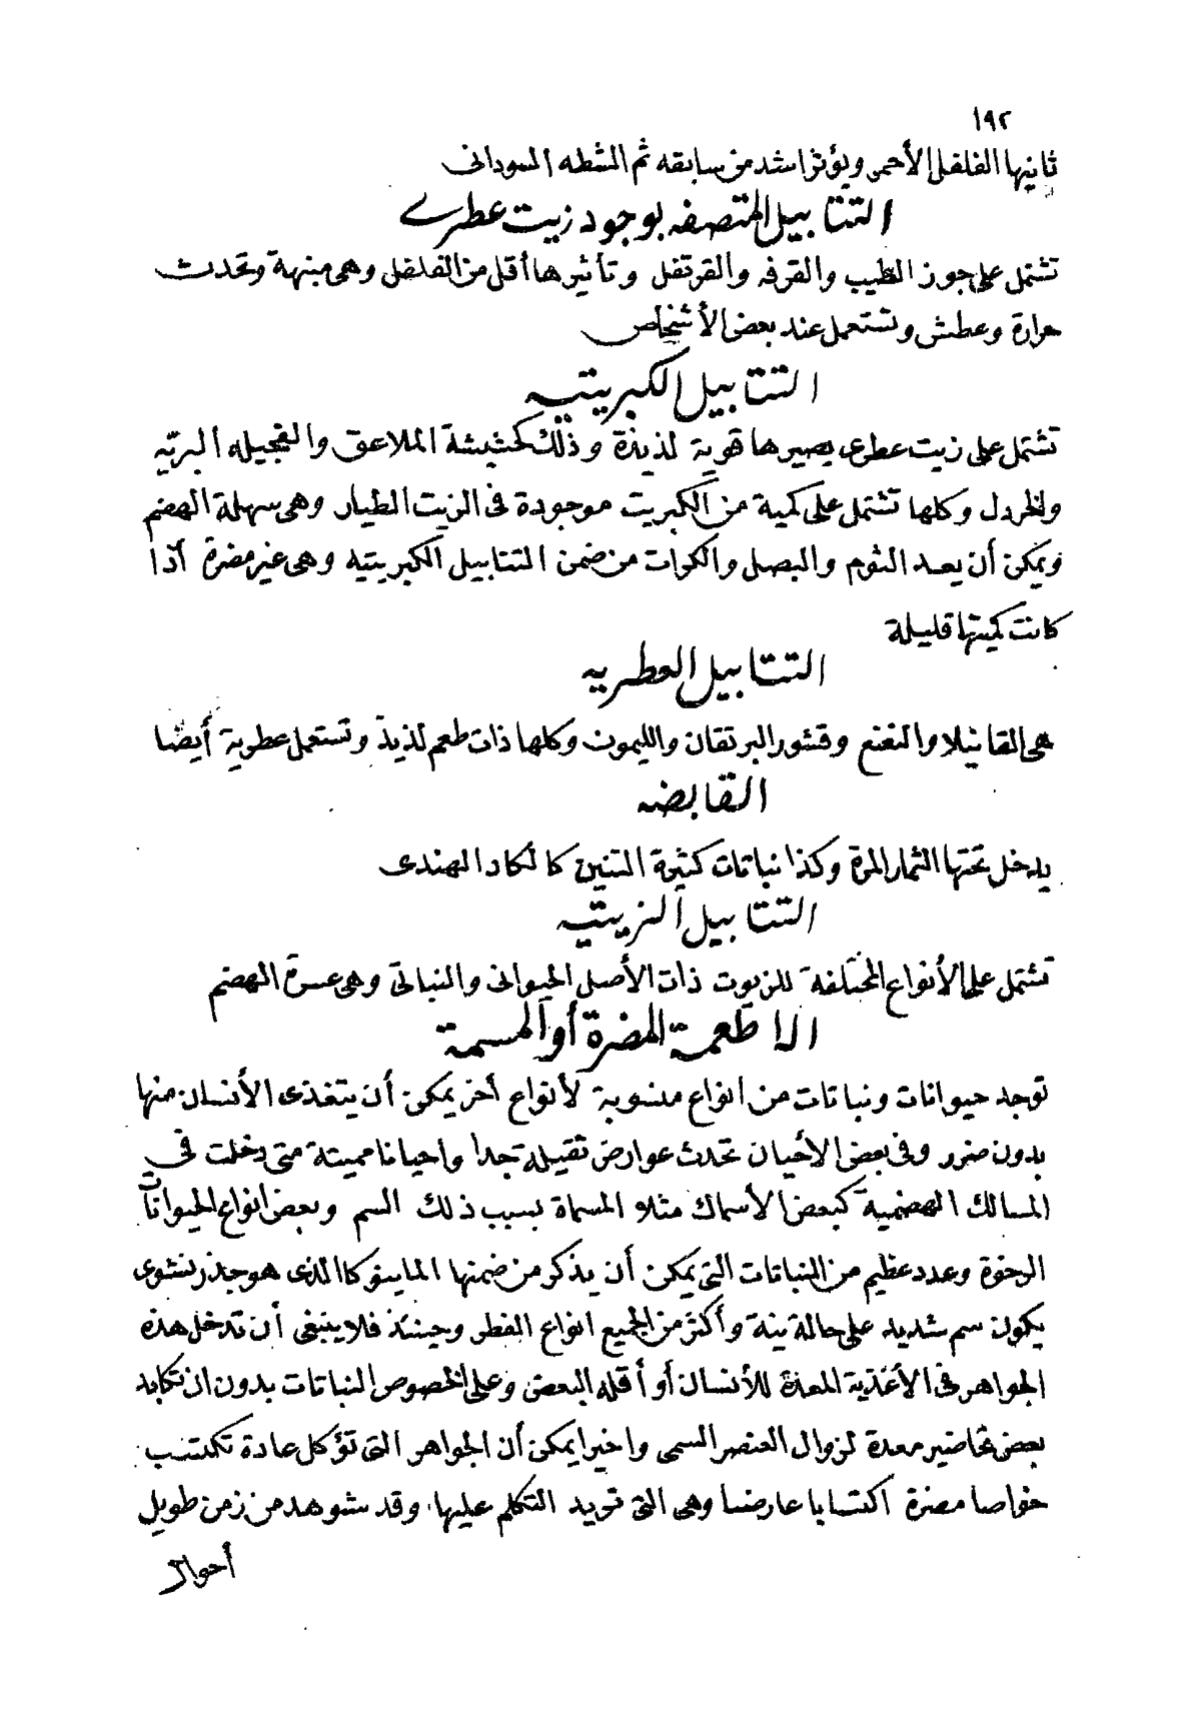 ١٩٢
ثانيها الفلفل الأحمر ويؤثر اشد من سابقه ثم الشطه السودانى
التتابيل المتصفه بوجود زيت عطرى
تشتمل على جوز الطيب والقرفه والقرنفل وتأثيرها أقل من الفلفل وهى منبهة وتحدث
حرارة وعطش وتستعمل عند بعض الأشخاص
التتابيل الكبريتيه
تشتمل على زيت عطرى يصيرها قوية لذيذة وذلك كحشيشة الملاعق والفجيله البريّه
والخردل وكلها تشتمل على كمية من الكبريت موجودة فى الزيت الطيار وهى سهلة الهضم
ويمكن أن يعد الثوم والبصل والكرات من ضمن التتابيل الكبريتيه وهى غير مضرة اذا
كانت كميتها قليلة
التتابيل العطريه
هى القانيلا والنعنع وقشور البرتقان والليمون وكلها ذات طعم لذيذ وتستعمل عطرية أيضا
القابضه
يدخل تحتها الثمار المرة وكذا نباتات كثيرة التنين كالكاد الهندى
التتابيل الزيتيه
تشتمل على الأنواع المختلفة للزيوت ذات الأصل الحيوانى والنباتى وهى عسرة الهضم
الاطعمة المضرة أو المسمة
توجد حيوانات ونباتات من انواع منسوبة لأنواع أخر يمكن أن يتغذى الأنسان منها
بدون ضرر وفى بعض الأحيان تحدث عوارض ثقيلة جدا واحيانا مميتة متى دخلت فى
المسالك الهضمية كبعض الأسماك مثلا المسماة بسبب ذلك السم وبعض انواع الحيوانات
الرخوة وعدد عظيم من النباتات التى يمكن أن يذكر من ضمنها المانيوكا الذى هو جذر نشوى
يكون سم شديد على حالة نيئة وأكثر من الجميع انواع الفطر وحينئذ فلا ينبغى أن تدخل هذه
الجواهر فى الأغذية المعدة للأنسان أو أقله البعض وعلى الخصوص النباتات بدون ان تكابد
بعض تحاضير معدة لزوال العنصر السمى واخيرا يمكن أن الجواهر التى تؤكل عادة تكتسب
خواصا مضرة اكتسابا عارضا وهى التى نريد التكلم عليها وقد شوهد من زمن طويل
أحوال